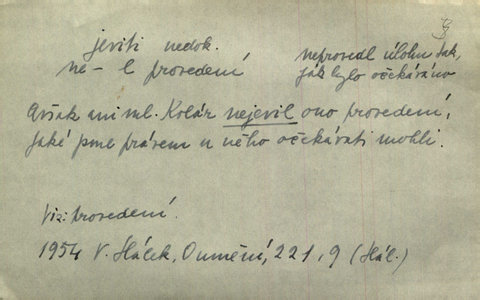 jeviti nedok.
ne-l provedení
neprovedl úlohu tak,
jak bylo očekáváno
Avšak ani ml. Kolár nejevil ono provedení,
jaké jsme právem u něho očekávati mohli.
Viz: provedení.
1954 V. Hálek, O umění, 221, 9 (Hál.)